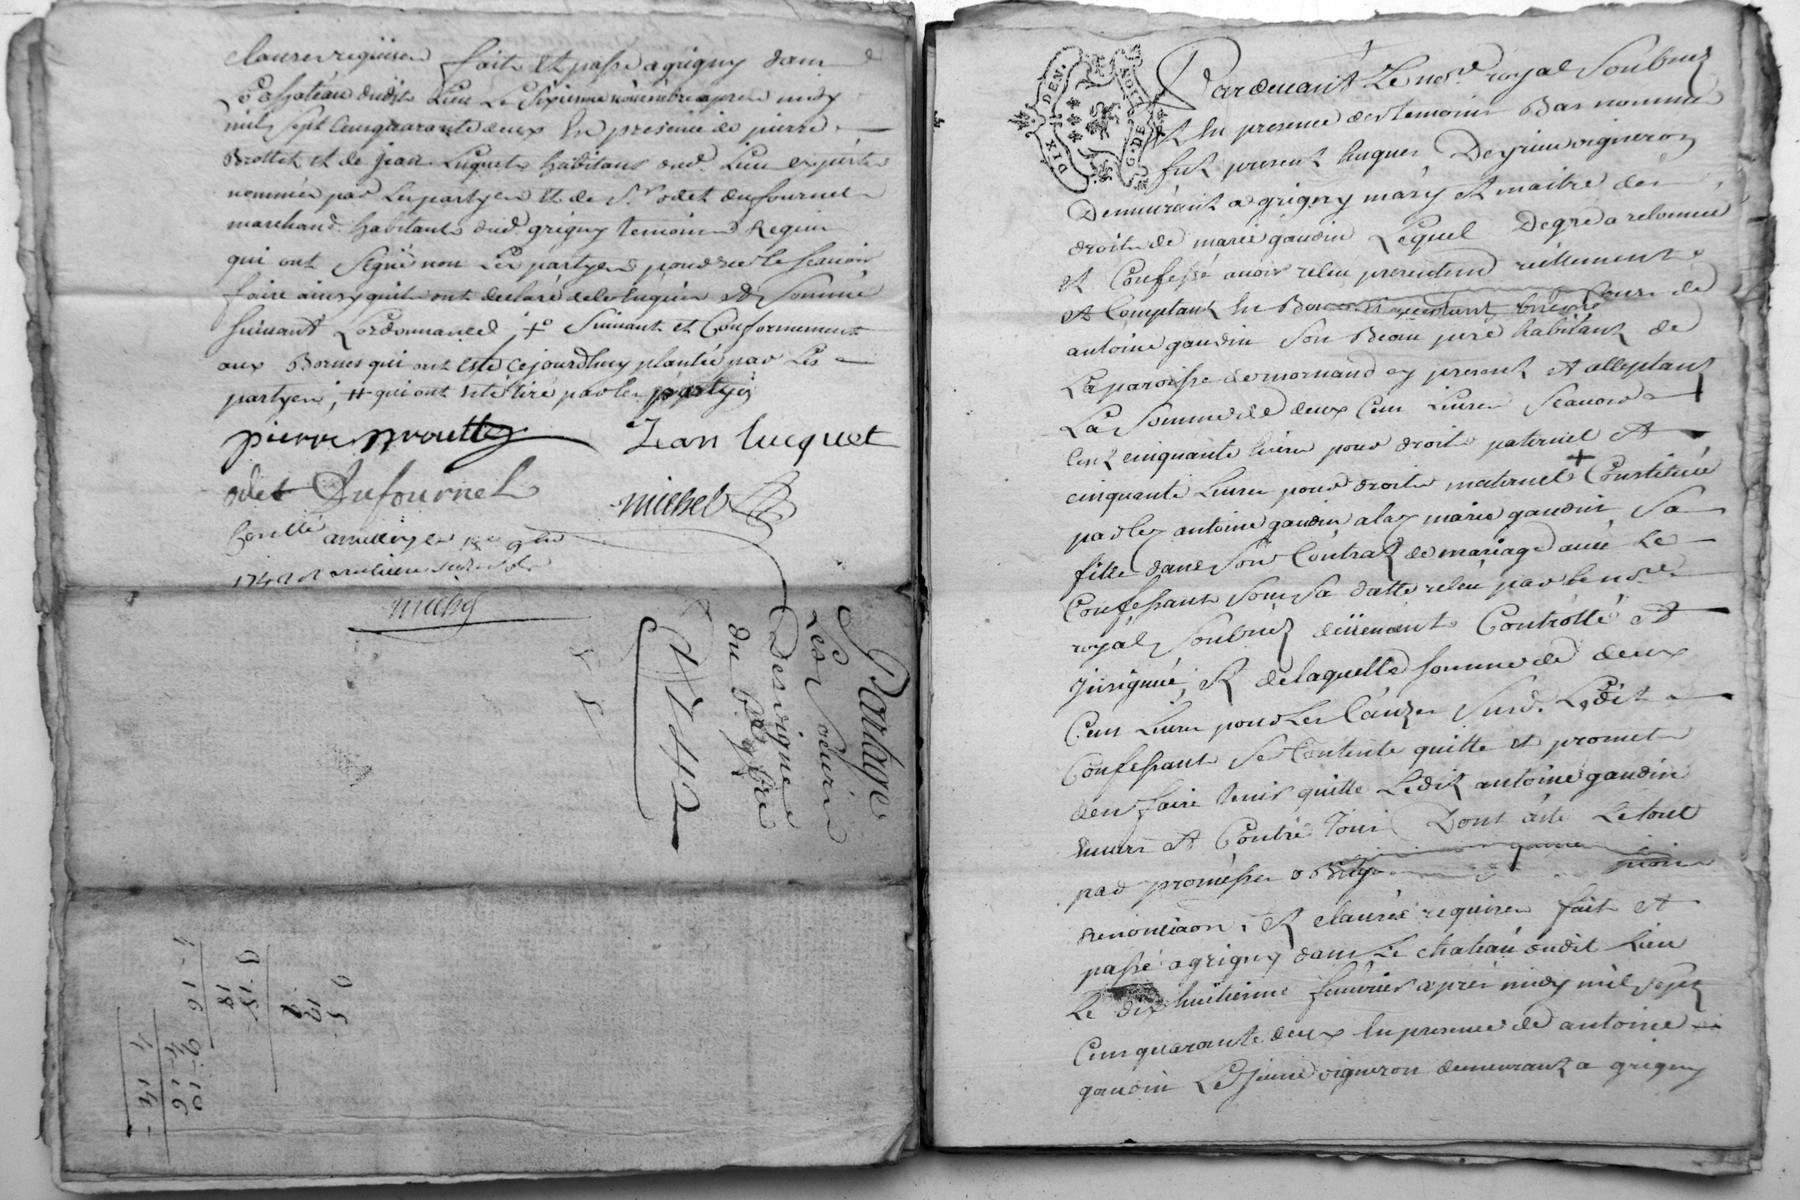 clauses requises fait et passé a grigny dans
Le chateau dudit Lieu Le Sixieme novembre apres midy
mil sept cens quarante deux En presence de pierre
Brottet et de jean Luquet habitans dud. Lieu experts
nommés par Les partyes et de Sr. odet dufournel
marchand habitant dud. grigny temoins Requis
qui ont Signé non Les partyes pour ne le scavoir
faire ainsy quils ont declaré de ce Enquis et Sommé
suivant Lordonnance ; + Suivant et Conformement
aux Bornes qui ont Esté cejourdhuy plantée par Les
partyes ; # qui ont esté tiré par les partyes
pierre Broutte Jean lucquet
odet Dufournel michel
1742
michel
Partage
Les Soeurs
Desvigne
du 6e 9bre
1742
DIX DEN
G. DE LION
Pardevant Le nore. royal Soubnez
Et En presence des temoins Bas nommés
fut present hugues Deyrieu vigneron
Demeurant a grigny mary et maitre des
droits de marie gaudin Lequel De gré a reconnu
et Confessé avoir reçeu presentem. reellement
Et Comptant En Bonnes Especes Cours de
antoine gaudin Son Beau pere habitant de
La paroisse de mornand cy present Et acceptant
La Somme de deux Cens Livres Scavoir
Cent cinquante livres pour droits paternel Et
cinquante Livres pour droits maternel + Constituée
par ley antoine gaudin a lay marie gaudin Sa
fille dans Son Contrat de mariage avec Le
Confessant Sous Sa datte reçeu par le nore.
royal Soubnez deüement Controllé Et
jnsignué, Et de laquelle Somme de deux
Cens Livres pour Les Causes Susd. Ledit
Confessant Se Contente quitte et promet
den faire tenir quitte Ledit antoine gaudin
Envers Et Contre Tous Dont acte Le tout
par promesses oblig
renonciaon, Et clauses requises fait Et
passé a grigny dans Le chateau dudit Lieu
Le dix huitieme fevrier apres midy mil sept
Cens quarante deux En presence de antoine
gaudin Le Jeune vigneron demeurant a grigny